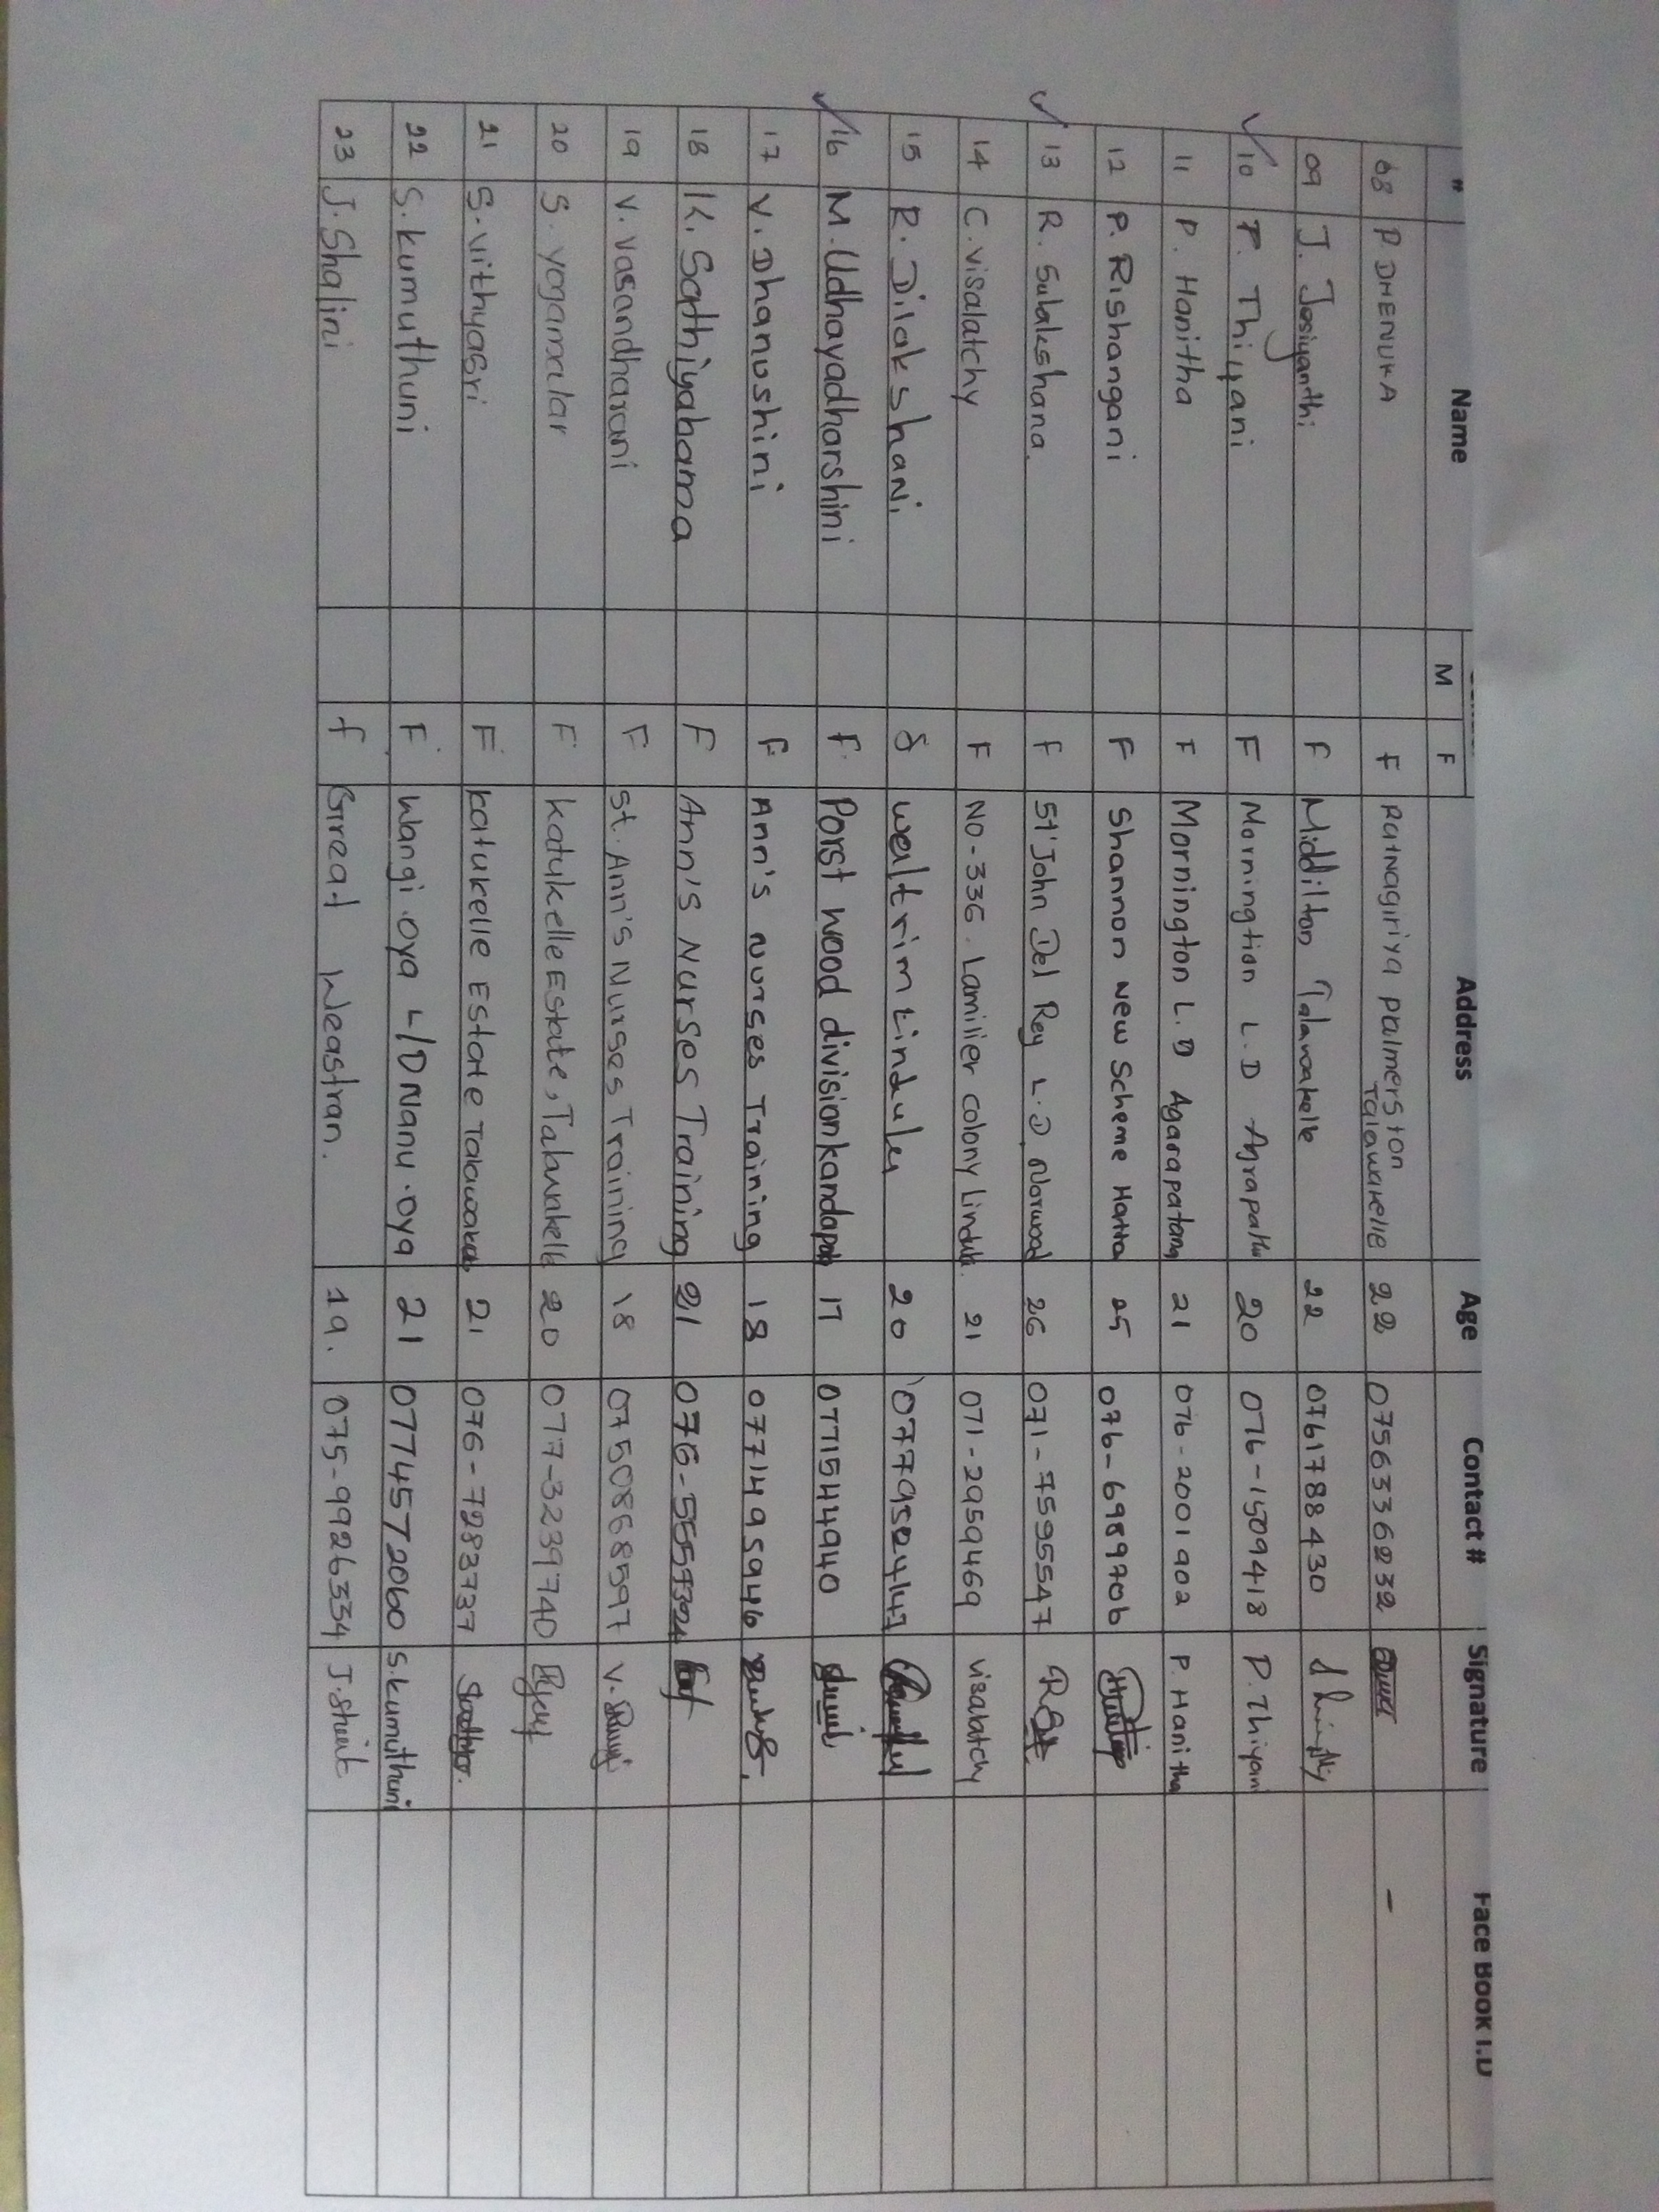 # Name M F Address Age Contact # Signature Face Book I.D
08 P DHENUKA F Ratnagiriya palmerston Talawakelle 22 0756336232 -
09 J. Jesiyanthi F Middilton Talawakelle 22 0761788430
✓10 P. Thiyani F Morningtion L.D Agrapatha 20 076-1509418 P. Thiyani
11 P. Hanitha F Mornington L.D Agarapatana 21 076-2001902 P. Hanitha
12 P. Rishangani F Shannon New Scheme Hatton 25 076-6989706
✓13 R. Sulakshana. F St'John Del Rey L.D, Norwood 26 071-7595547
14 C. Visalatchy F NO-336. Lamilier colony Lindula. 21 071-2959469 visalatchy
15 R. Dilakshani wealtrim Lindula 20
✓16 M. Udhayadharshini f. Porst wood division kandapola 17 0771544940
17 V. Dhanushini F. Ann's Nurses Training 18 0771495946
18 K. Sathiyabama F Ann's Nurses Training 21
19 V. Vasandharani F St. Ann's Nurses Training 18 0750868597
20 S. yogamalar F Katukelle Estate, Talawakelle 20 077-3239740
21 S. vithyasri F katukelle Estate Talawakelle 21 076-7283737
22 S. kumuthuni F Wangi.oya L/D Nanu.oya 21 0774572060 S. kumuthuni
23 J. Shalini f Great Weastran. 19. 075-9926334